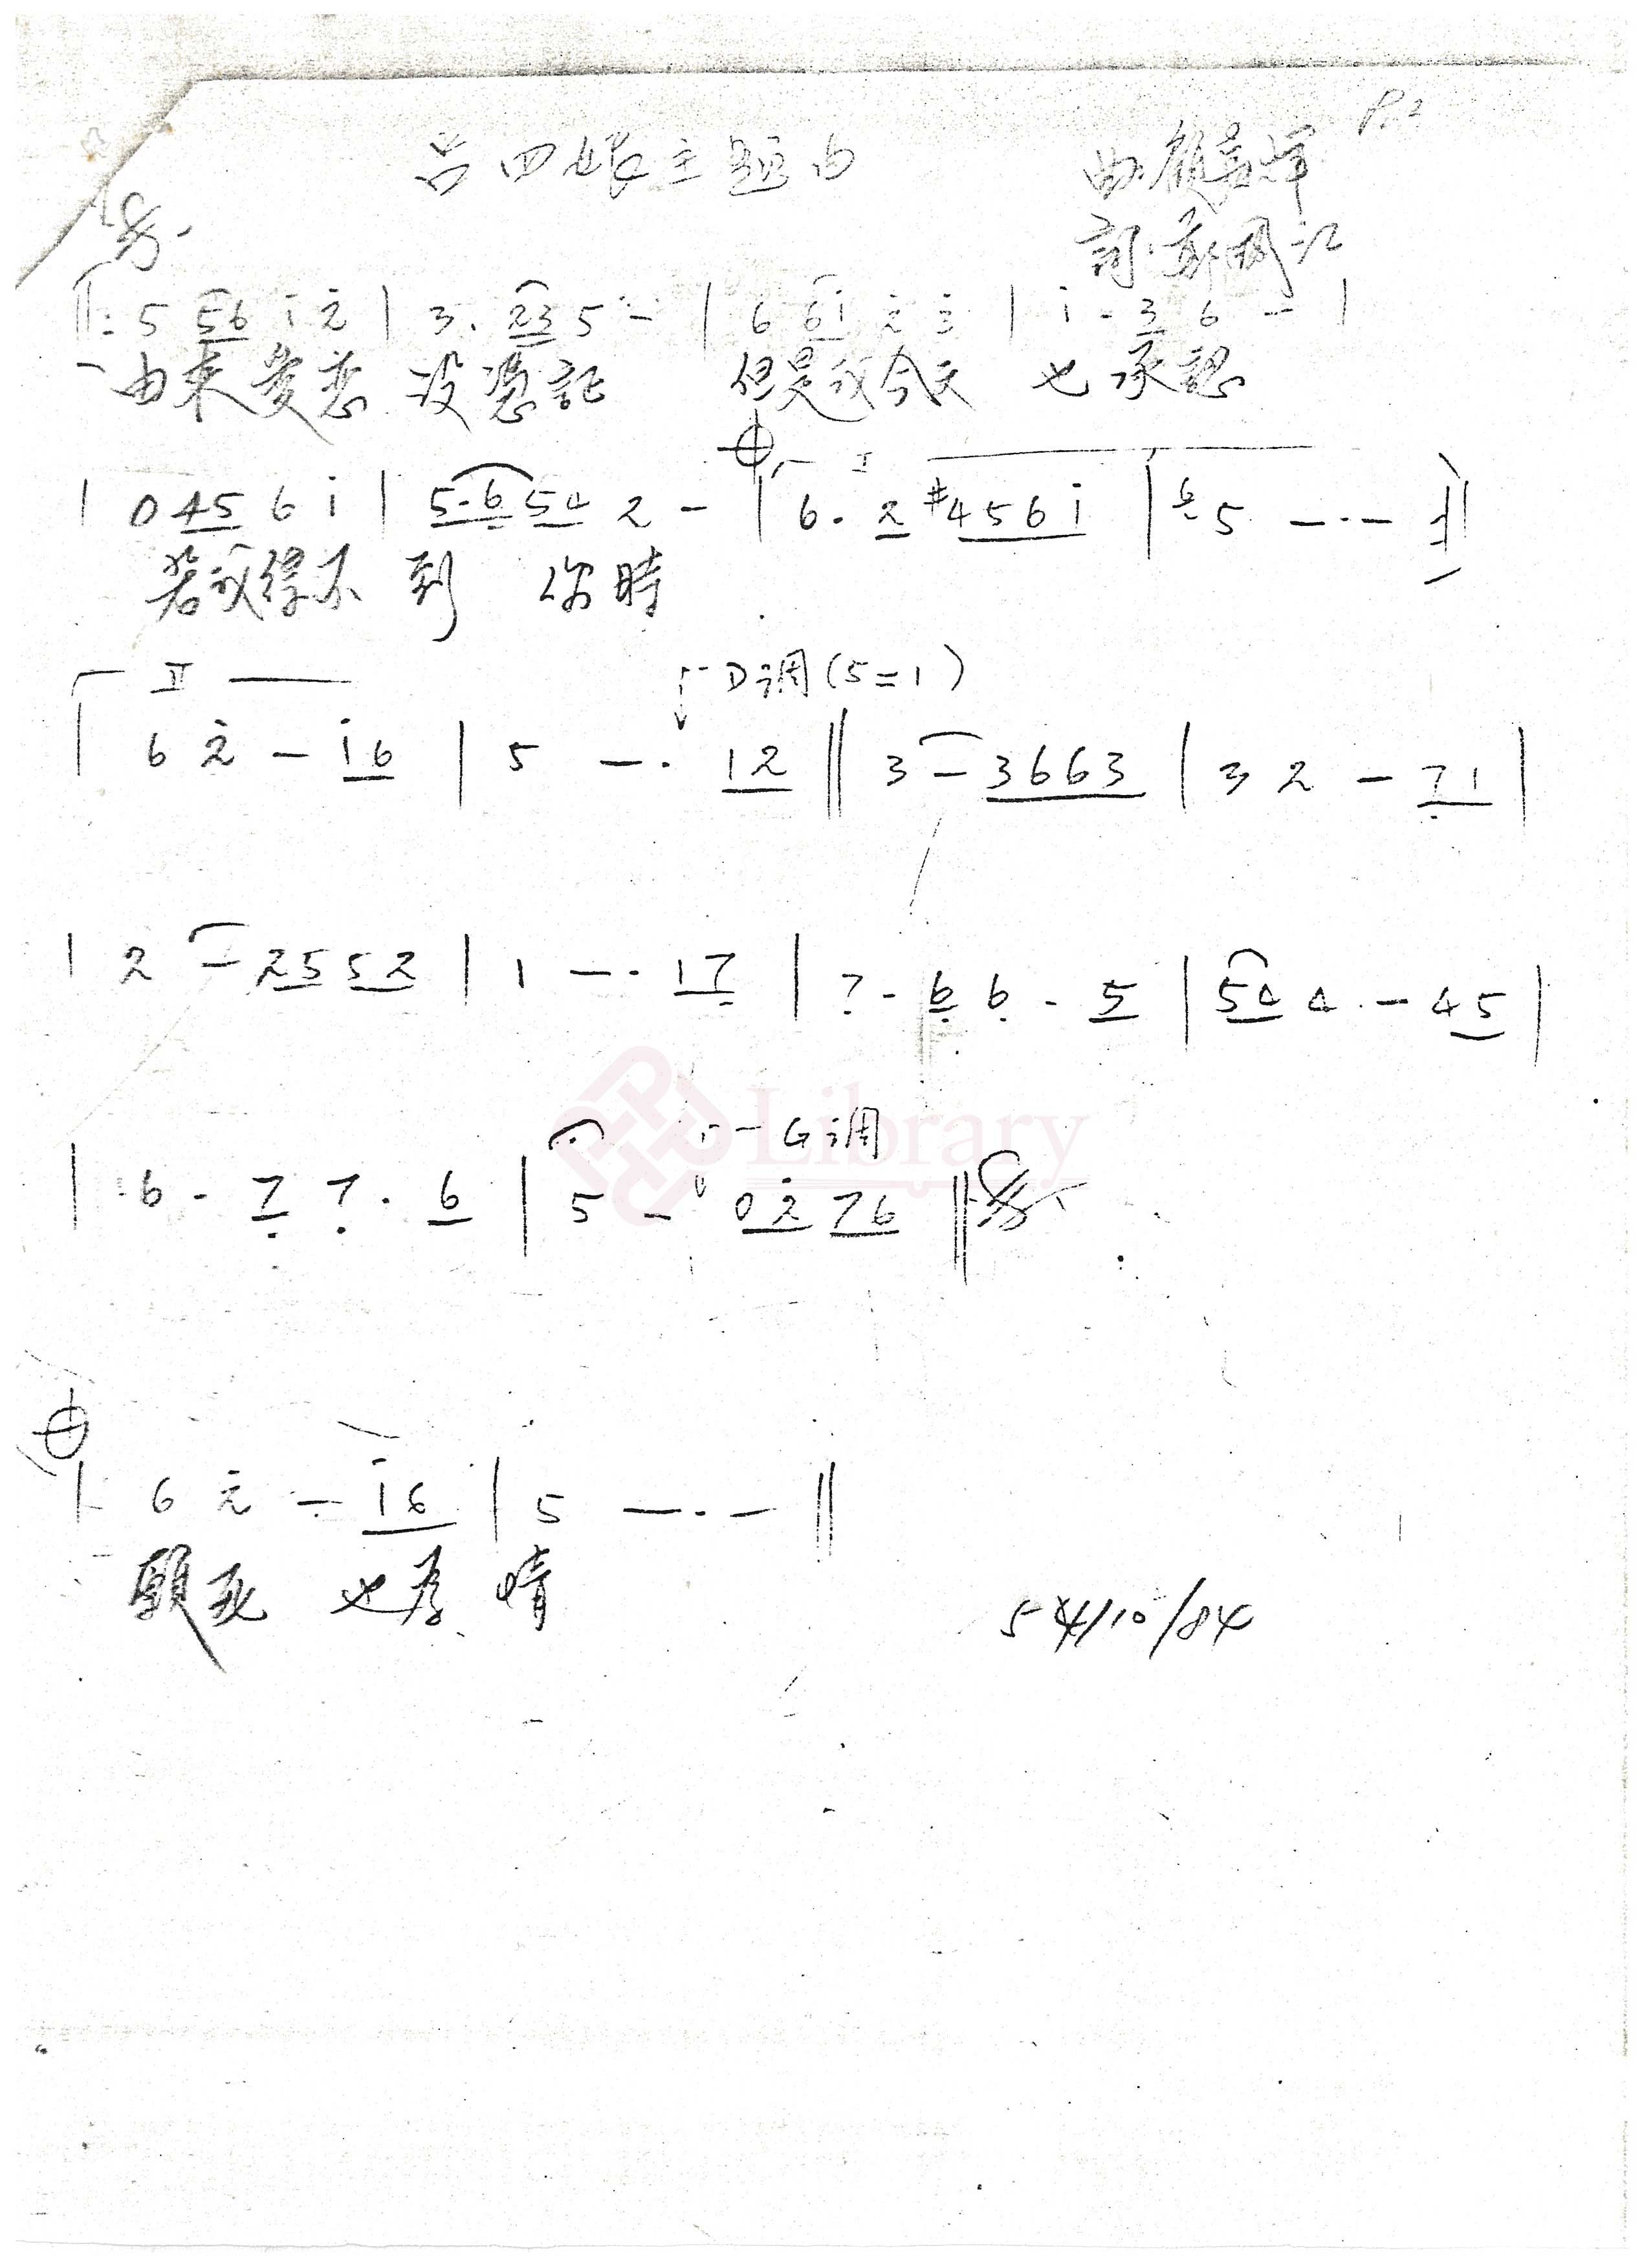 P.2
呂四娘主題曲
曲:顧嘉煇
詞:鄭國江
‖: 5 56 i 2̇ | 3. 23 5 - | 6 6i 2̇ 3̇ | i . 3 6 - |
由來愛戀 沒憑証 但是我今天 也承認
I
| 0 45 6 i | 5.6 54 2 - | 6. 2 #4 5 6 i | 5 - - - :‖
若我得不到 你時
II D调(5=1)
| 6 2̇ - i6 | 5 - . 12 ‖ 3 - 3663 | 3 2 - 7̣1 |
| 2 - 2552 | 1 - . 17̣ | 7̣ . 6̣ 6̣ . 5 | 54 4 - 45 |
G调
| 6 . 7̣ 7̣ . 6 | 5 - 0 2̇ 76 ‖
| 6 2̇ - i6 | 5 - - - ‖
願死 也為情